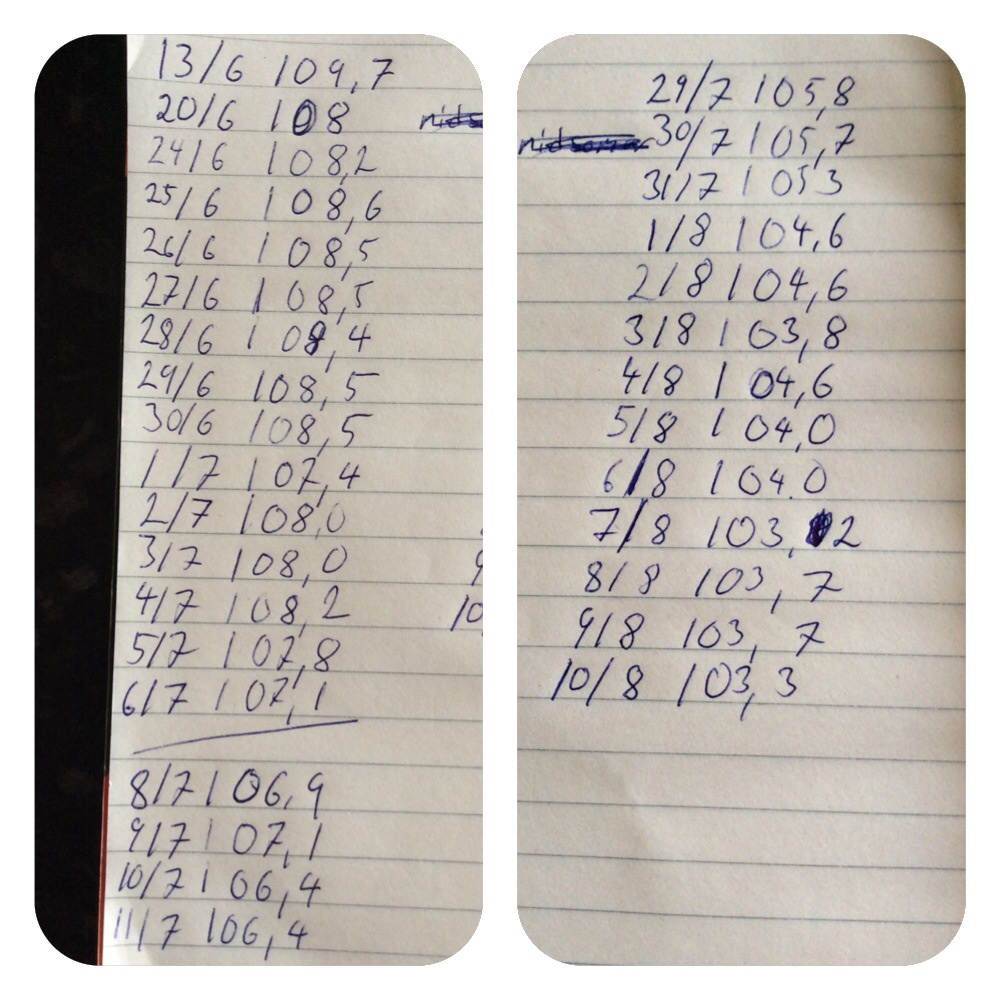 13/6 109,7
20/6 108
24/6 108,2
25/6 108,6
26/6 108,5
27/6 108,5
28/6 108,4
29/6 108,5
30/6 108,5
1/7 107,4
2/7 108,0
3/7 108,0
4/7 108,2
5/7 107,8
6/7 107,1
8/7 106,9
9/7 107,1
10/7 106,4
11/7 106,4
29/7 105,8
30/7 105,7
31/7 105 3
1/8 104,6
2/8 104,6
3/8 103,8
4/8 104,6
5/8 104,0
6/8 104.0
7/8 103, 2
8/8 103, 7
9/8 103, 7
10/8 103, 3